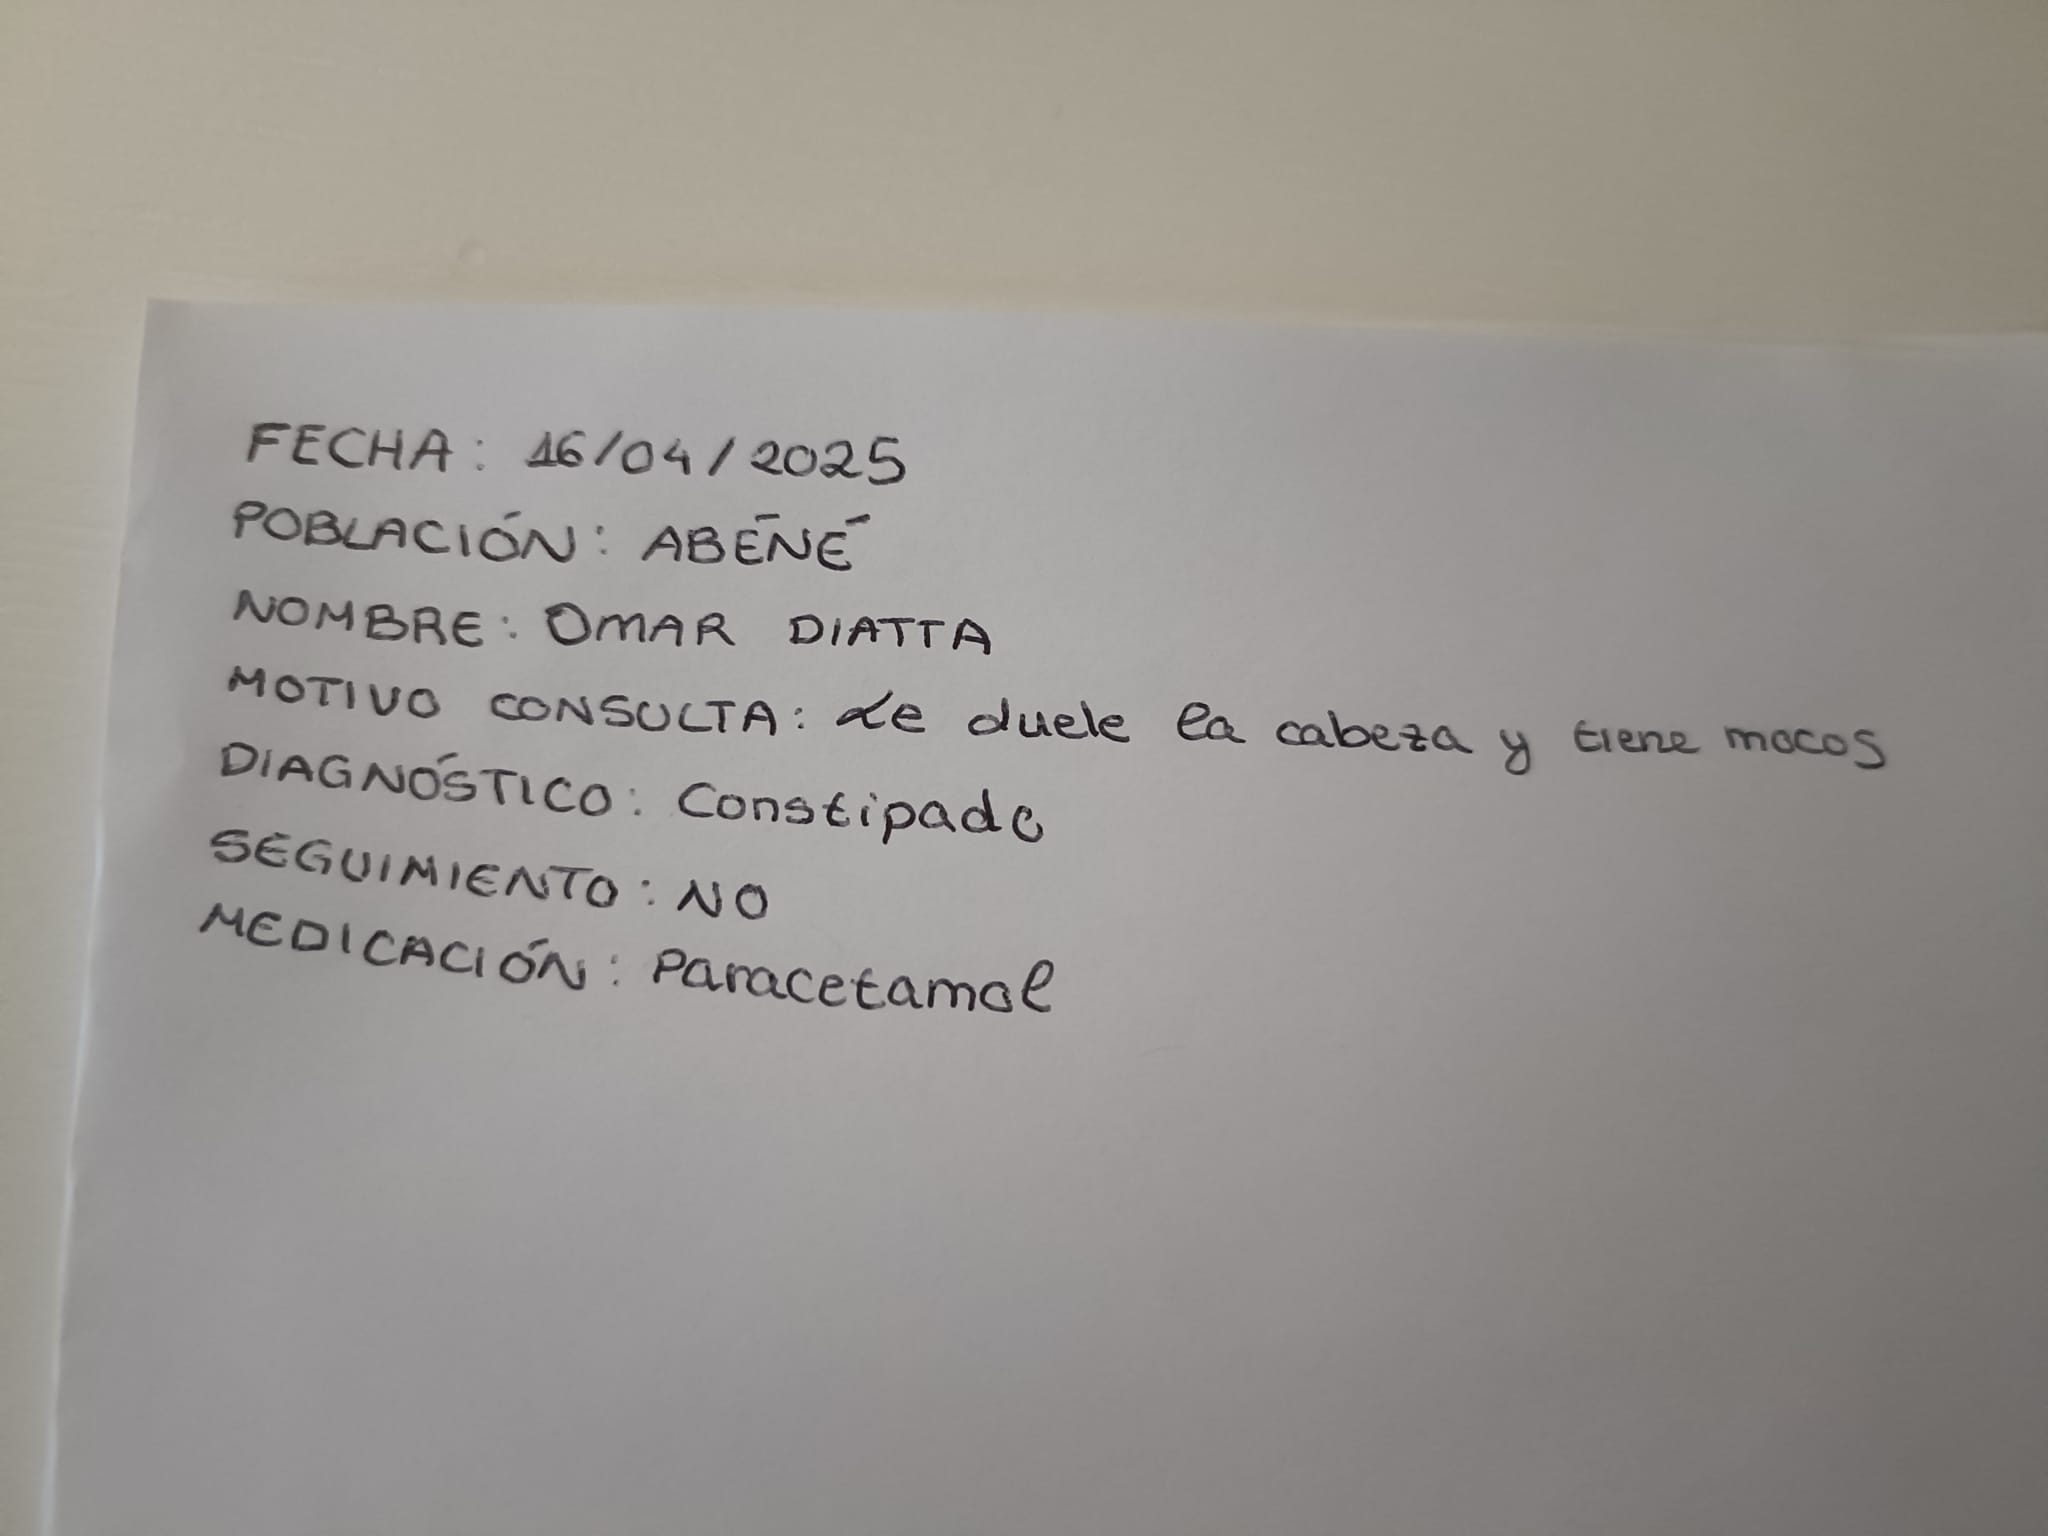 FECHA: 16/04/2025
POBLACIÓN: ABÉNÉ
NOMBRE: OMAR DIATTA
MOTIVO CONSULTA: Le duele la cabeza y tiene mocos
DIAGNÓSTICO: Constipado
SEGUIMIENTO: NO
MEDICACIÓN: Paracetamol